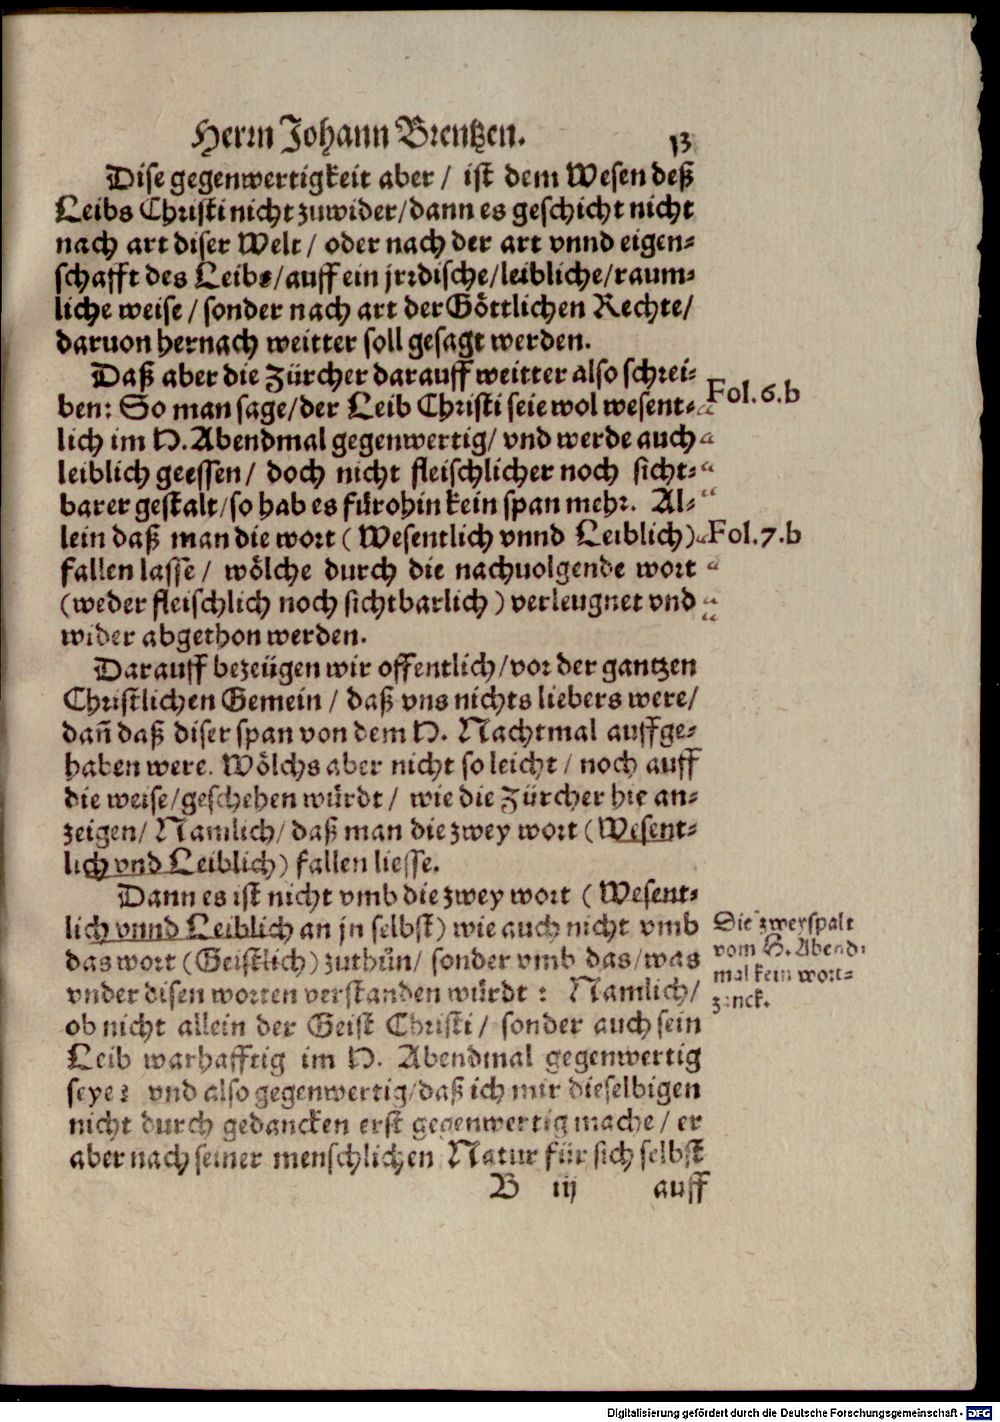 Herrn Johann Brentzen. 13
Dise gegenwertigkeit aber / ist dem Wesen deß
Leibs Christi nicht zuwider / dann es geschicht nicht
nach art diser Welt / oder nach der art vnnd eigen-
schafft des Leibs / auff ein jrrdische / leibliche / raum-
liche weise / sonder nach art der Göttlichen Rechte /
daruon hernach weitter soll gesagt werden.
Daß aber die Zürcher darauff weitter also schrei-
ben: So man sage / der Leib Christi seie wol wesent-
Fol. 6. b
lich im H. Abendmal gegenwertig / vnd werde auch
leiblich geessen / doch nicht fleischlicher noch sicht-
barer gestalt / so hab es fürohin kein span mehr. Al-
lein daß man die wort ( Wesentlich vnnd Leiblich )
Fol. 7. b
fallen lasse / wölche durch die nachuolgende wort
(weder fleischlich noch sichtbarlich ) verleugnet vnd
wider abgethon werden.
Darauff bezeügen wir offentlich / vor der gantzen
Christlichen Gemein / daß vns nichts liebers were /
dañ daß diser span von dem H. Nachtmal auffge-
haben were. Wölchs aber nicht so leicht / noch auff
die weise / geschehen würdt / wie die Zürcher hie an-
zeigen / Namlich / daß man die zwey wort ( Wesent-
lich vnd Leiblich ) fallen liesse.
Dann es ist nicht vmb die zwey wort ( Wesent-
lich vnnd Leiblich an jn selbst ) wie auch nicht vmb
das wort ( Geistlich ) zuthůn / sonder vmb das / was
vnder disen worten verstanden würdt : Namlich /
ob nicht allein der Geist Christi / sonder auch sein
Leib warhafftig im H. Abendmal gegenwertig
seye : vnd also gegenwertig / daß ich mir dieselbigen
nicht durch gedancken erst gegenwertig mache / er
aber nach seiner menschlichen Natur für sich selbst
Die zwerspalt
vom H. Abend-
mal kein wort-
zanck.
B iij auff
Digitalisierung gefördert durch die Deutsche Forschungsgemeinschaft - DFG